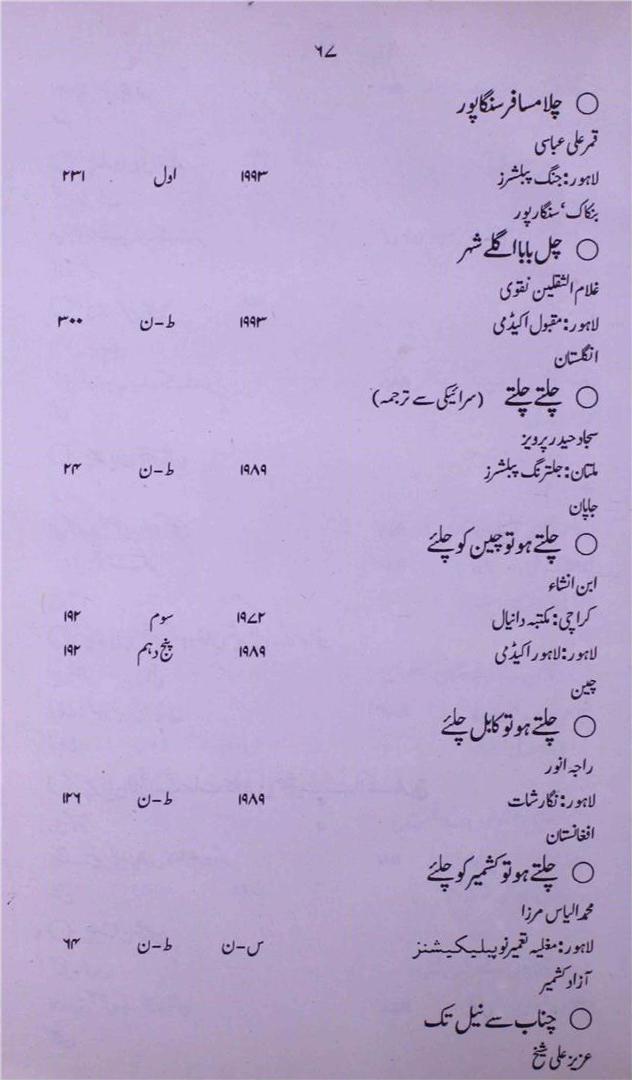 ۶۷
○ چلا مسافر سنگاپور
قمر علی عباسی
لاہور: جنگ پبلشرز ۱۹۹۳ اول ۲۳۱
بنکاک‘ سنگارپور
○ چل بابا اگلے شہر
غلام الثقلین نقوی
لاہور: مقبول اکیڈمی ۱۹۹۳ ط-ن ۳۰۰
انگلستان
○ چلتے چلتے (سرائیکی سے ترجمہ)
سجاد حیدر پرویز
ملتان: جلترنگ پبلشرز ۱۹۸۹ ط-ن ۲۴
جاپان
○ چلتے ہو تو چین کو چلئے
ابن انشاء
کراچی: مکتبہ دانیال ۱۹۷۲ سوم ۱۹۲
لاہور: لاہور اکیڈمی ۱۹۸۹ پنج دہم ۱۹۲
چین
○ چلتے ہو تو کابل چلئے
راجہ انور
لاہور: نگارشات ۱۹۸۹ ط-ن ۱۳۶
افغانستان
○ چلتے ہو تو کشمیر کو چلئے
محمد الیاس مرزا
لاہور: مغلیہ تعمیر نو پبلیکیشنز س-ن ط-ن ۶۴
آزاد کشمیر
○ چناب سے نیل تک
عزیز علی شیخ